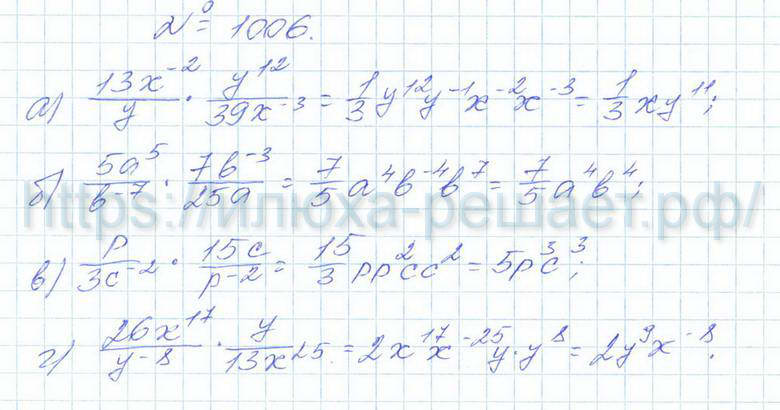 № 1006.
а) 13x⁻²/y · y¹²/39x⁻³ = 1/3 y¹²y⁻¹x⁻²x⁻³ = 1/3 xy¹¹;
б) 5a⁵/b⁻⁷ · 7b⁻³/25a = 7/5 a⁴b⁻⁴b⁷ = 7/5 a⁴b⁴;
https://илюха-решает.рф/
в) p/3c⁻² · 15c/p⁻² = 15/3 pp²cc² = 5p³c³;
г) 26x¹⁷/y⁻⁸ · y/13x²⁵ = 2x¹⁷x⁻²⁵y·y⁸ = 2y⁹x⁻⁸.